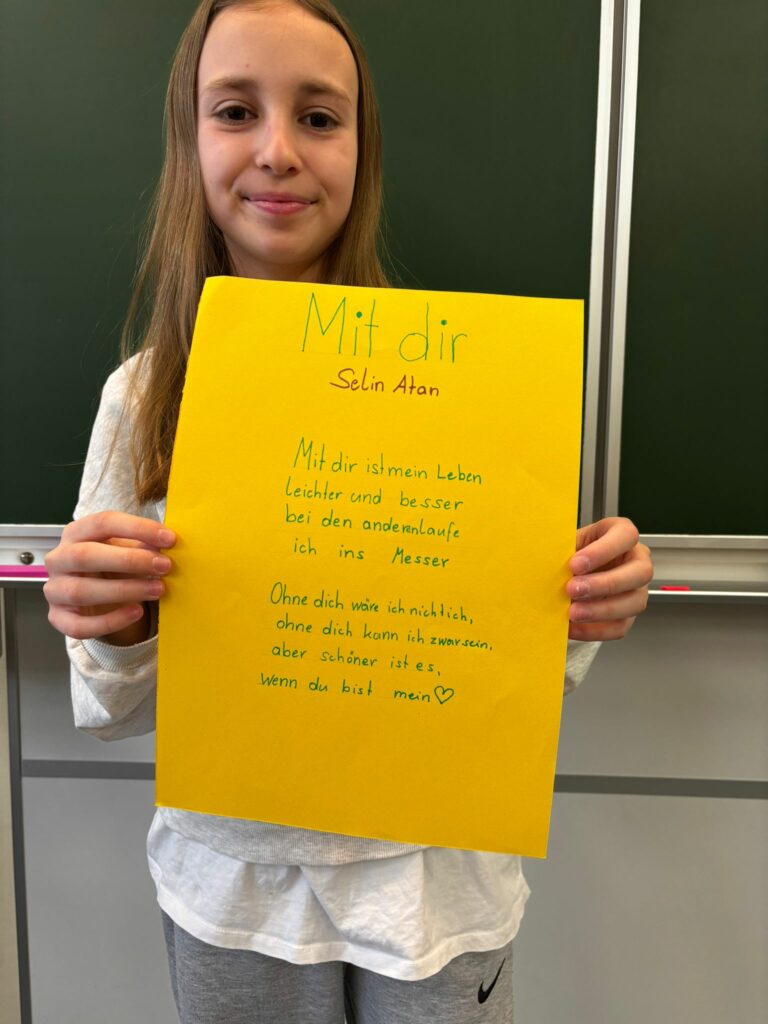 Mit dir
Selin Atan
Mit dir ist mein Leben
leichter und besser
bei den anderen laufe
ich ins Messer
Ohne dich wäre ich nicht ich,
ohne dich kann ich zwar sein,
aber schöner ist es,
wenn du bist mein♡